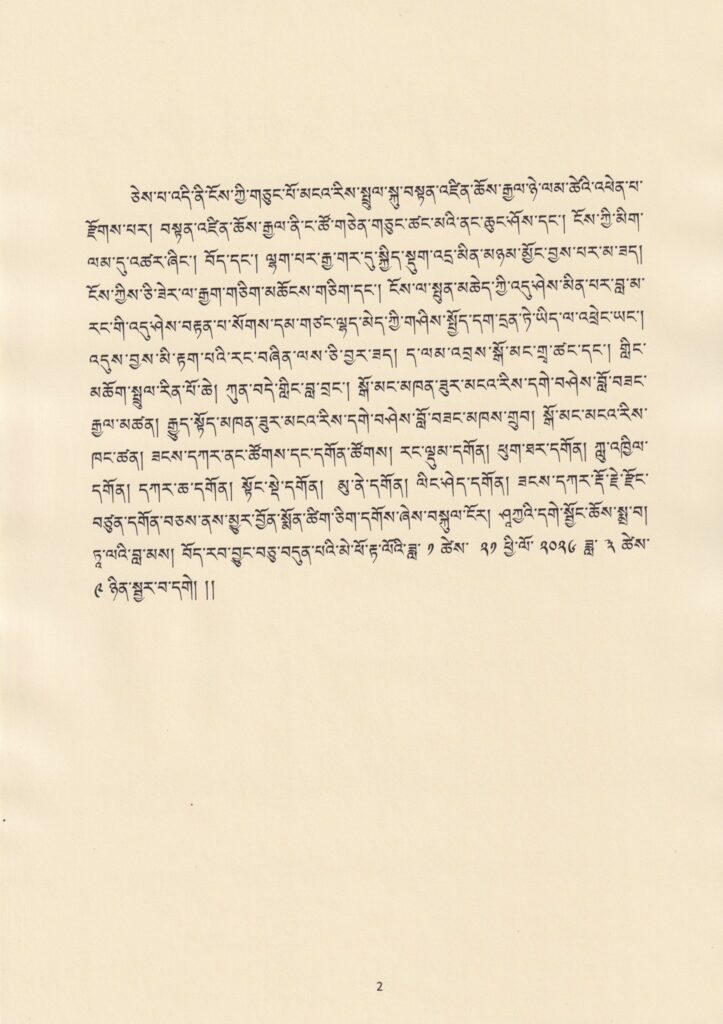 ཅེས་པ་འདི་ནི་ངོས་ཀྱི་གཅུང་པོ་མངའ་རིས་སྤྲུལ་སྐུ་བསྟན་འཛིན་ཆོས་རྒྱལ་ཉེ་ལམ་ཚེའི་འཕེན་པ་
རྫོགས་པར། བསྟན་འཛིན་ཆོས་རྒྱལ་ནི་ང་ཚོ་གཅེན་གཅུང་ཚང་མའི་ནང་ཆུང་ཤོས་དང་། ངོས་ཀྱི་མིག་
ལམ་དུ་འཚར་ཞིང་། བོད་དང་། ལྷག་པར་རྒྱ་གར་དུ་སྐྱིད་སྡུག་འདྲ་མིན་མཉམ་མྱོང་བྱས་པར་མ་ཟད།
ངོས་ཀྱིས་ཅི་ཟེར་ལ་རྒྱག་གཅིག་མཆོངས་གཅིག་དང་། ངོས་ལ་སྤུན་མཆེད་ཀྱི་འདུ་ཤེས་མིན་པར་བླ་མ་
རང་གི་འདུ་ཤེས་བརྟན་པ་སོགས་དམ་གཙང་ལྷད་མེད་ཀྱི་གཤིས་སྤྱོད་དག་དྲན་ཏེ་ཡིད་ལ་འཕྲེང་ཡང་།
འདུས་བྱས་མི་རྟག་པའི་རང་བཞིན་ལས་ཅི་བྱར་ཟད། ད་ལམ་འབྲས་སྒོ་མང་གྲྭ་ཚང་དང་། གླིང་
མཆོག་སྤྲུལ་རིན་པོ་ཆེ། ཀུན་བདེ་གླིང་བླ་བྲང་། སྒོ་མང་མཁན་ཟུར་མངའ་རིས་དགེ་བཤེས་བློ་བཟང་
རྒྱལ་མཚན། རྒྱུད་སྟོད་མཁན་ཟུར་མངའ་རིས་དགེ་བཤེས་བློ་བཟང་མཁས་གྲུབ། སྒོ་མང་མངའ་རིས་
ཁང་ཚན། ཟངས་དཀར་ནང་ཚོགས་དང་དགོན་ཚོགས། རང་ལྡུམ་དགོན། ཕུག་ཐར་དགོན། ཀླུ་འཁྱིལ་
དགོན། དཀར་ཆ་དགོན། སྟོང་སྡེ་དགོན། མུ་ནེ་དགོན། ལིང་ཤེད་དགོན། ཟངས་དཀར་རྡོ་རྗེ་རྫོང་
བཙུན་དགོན་བཅས་ནས་མྱུར་བྱོན་སྨོན་ཚིག་ཅིག་དགོས་ཞེས་བསྐུལ་ངོར། ཤཱཀྱའི་དགེ་སྦྱོང་ཆོས་སྨྲ་བ།
ཏཱ་ལའི་བླ་མས། བོད་རབ་བྱུང་བཅུ་བདུན་པའི་མེ་ཕོ་རྟ་ལོའི་ཟླ་ ༡ ཚེས་ ༢༡ ཕྱི་ལོ་ ༢༠༢༦ ཟླ་ ༣ ཚེས་
༩ ཉིན་སྦྱར་བ་དགེ། །།
2